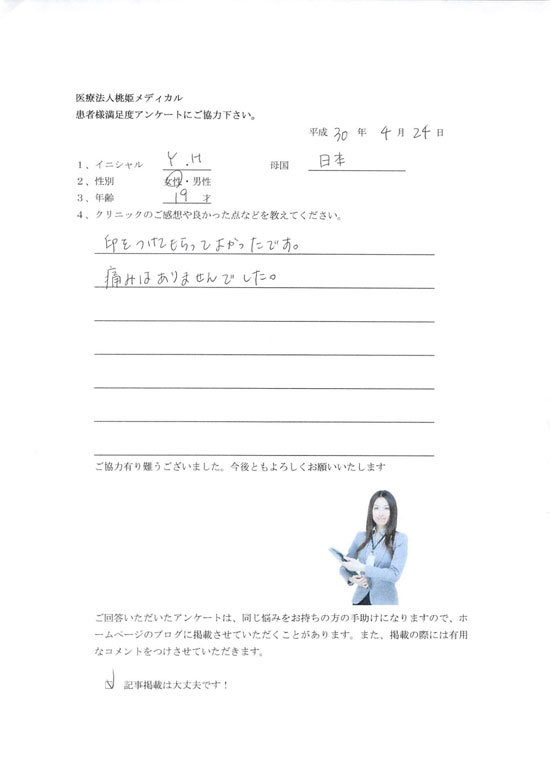 医療法人桃姫メディカル
患者様満足度アンケートにご協力下さい。
平成 30 年 4 月 24 日
1、イニシャル Y.H 母国 日本
2、性別 女性・男性
3、年齢 19 才
4、クリニックのご感想や良かった点などを教えてください。
印をつけてもらってよかったです。
痛みはありませんでした。
ご協力有り難うございました。今後ともよろしくお願いいたします
ご回答いただいたアンケートは、同じ悩みをお持ちの方の手助けになりますので、ホ
ームページのブログに掲載させていただくことがあります。また、掲載の際には有用
なコメントをつけさせていただきます。
記事掲載は大丈夫です！